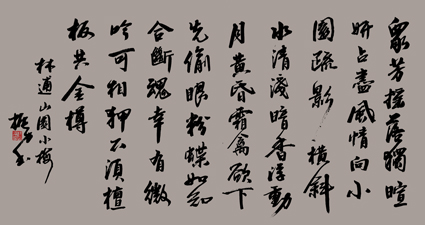 眾芳摇落獨暄
妍占盡風情向小
園疏影橫斜
水清淺暗香浮動
月黄昏霜禽欲下
先偷眼粉蝶如知
合斷魂幸有微
吟可相狎不須檀
板共金樽
林逋山園小梅